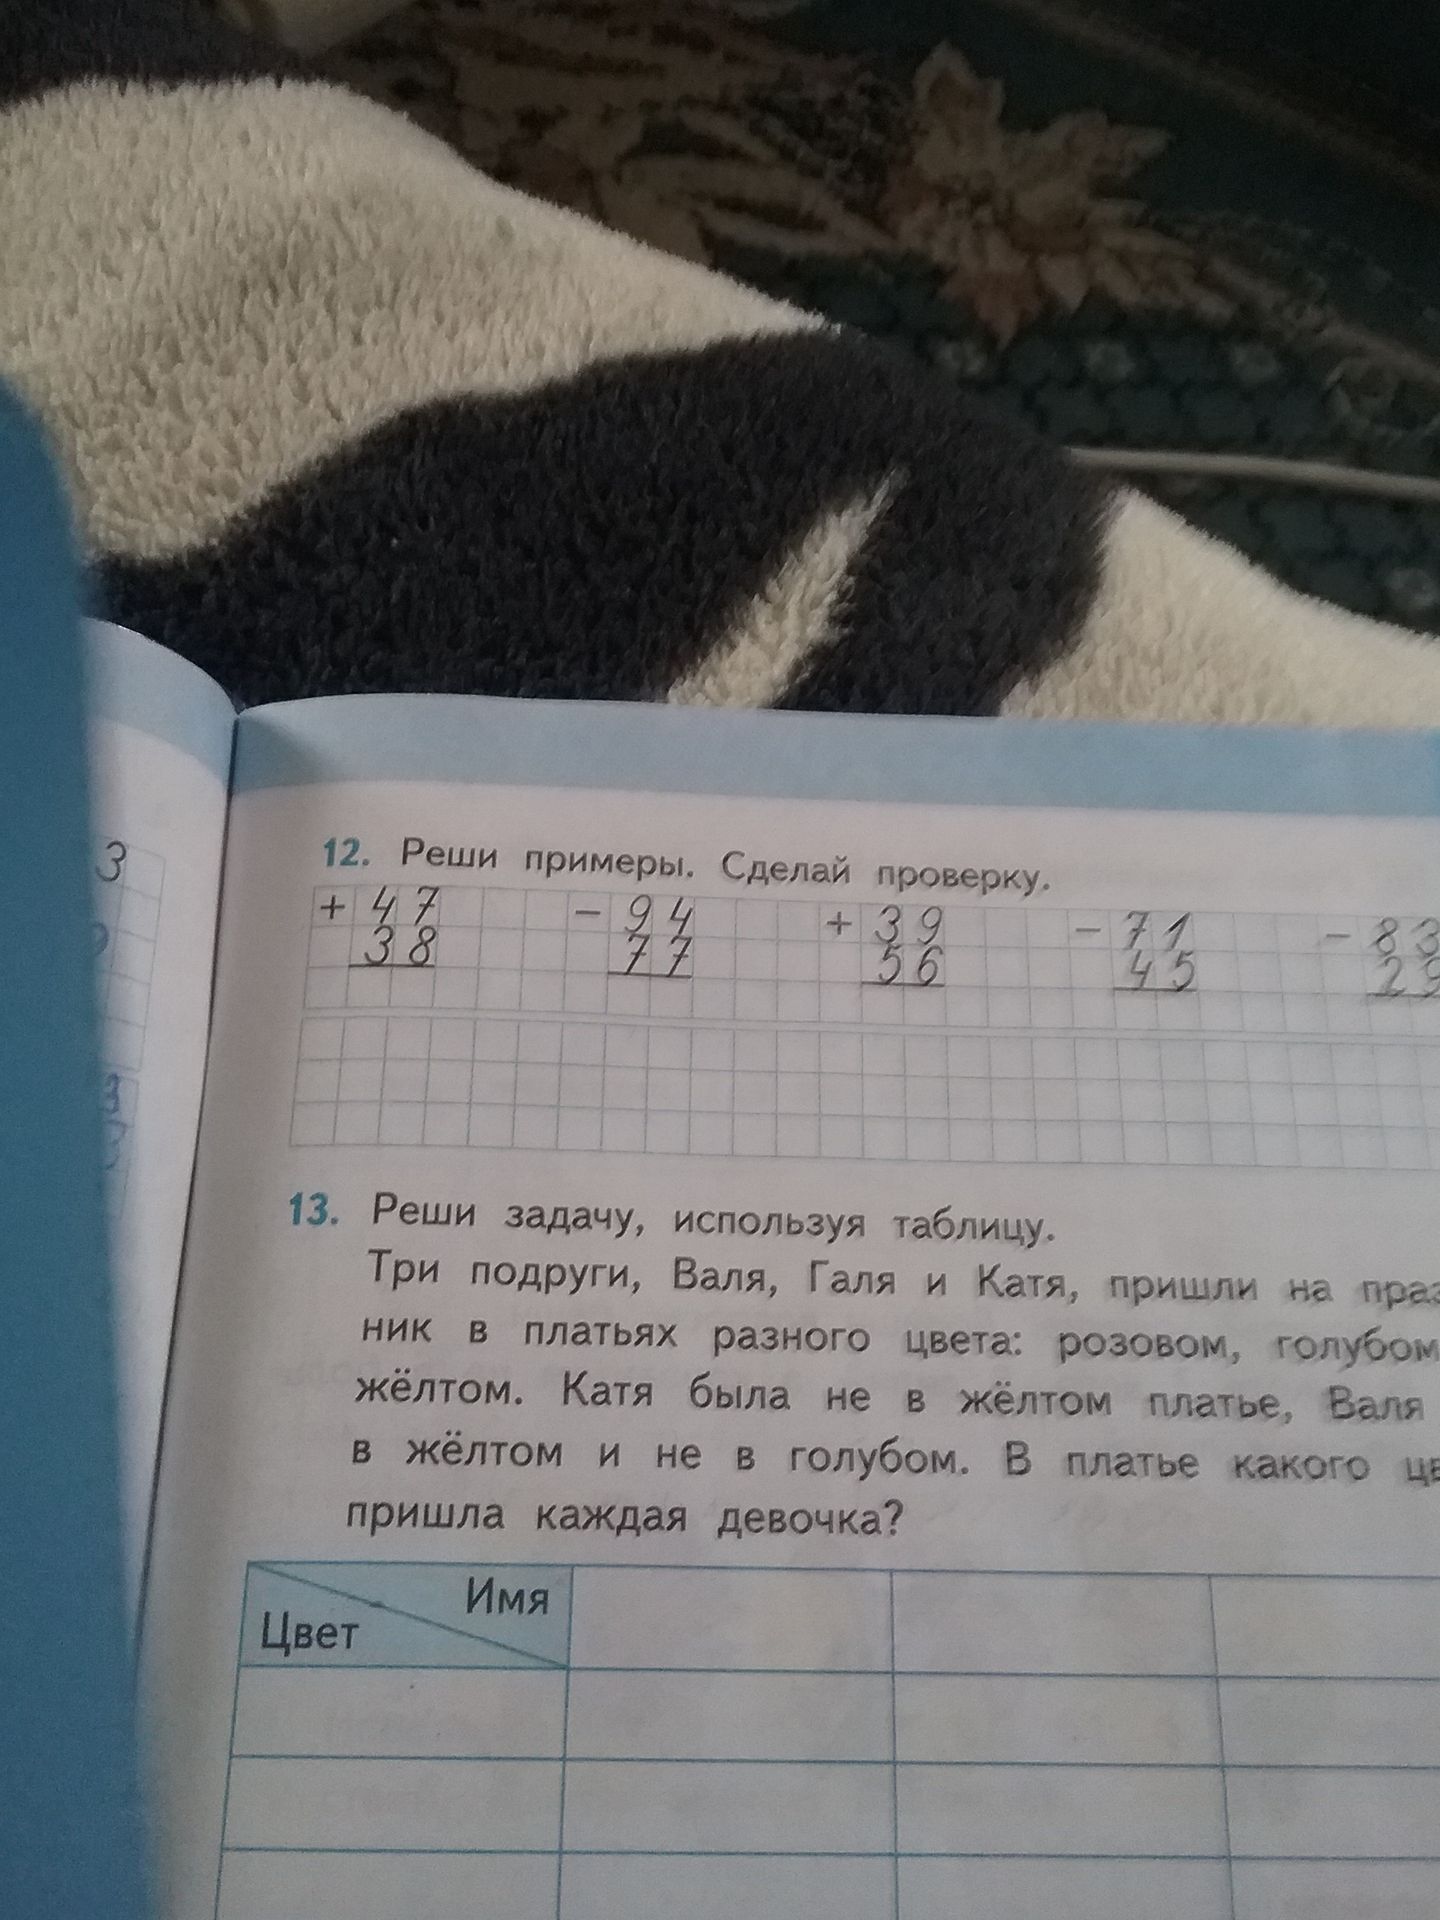 3
12. Реши примеры. Сделай проверку.
+ 47 − 94 + 39 − 71 − 83
38 77 56 45 29
13. Реши задачу, используя таблицу.
Три подруги, Валя, Галя и Катя, пришли на праз
ник в платьях разного цвета: розовом, голубом
жёлтом. Катя была не в жёлтом платье, Валя
в жёлтом и не в голубом. В платье какого цв
пришла каждая девочка?
Имя
Цвет